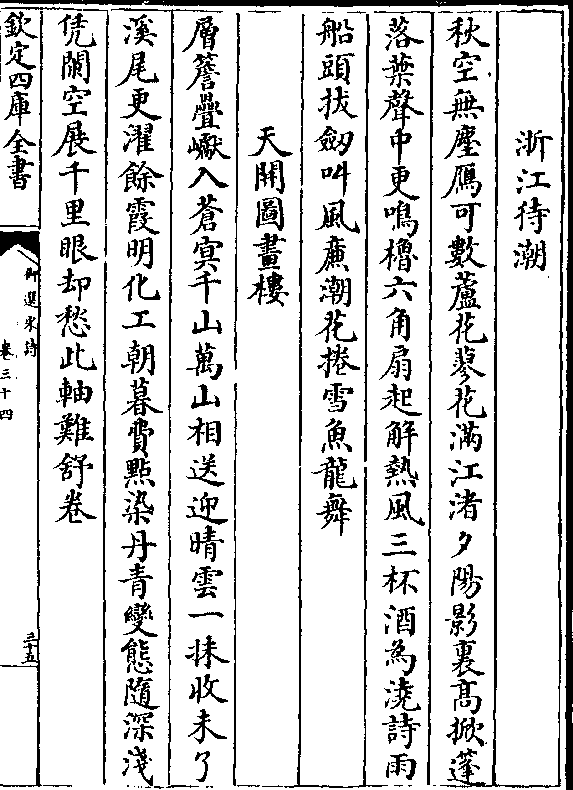 浙江待潮
秋空無塵鴈可數蘆花蓼花滿江渚夕陽影裏高掀蓬
落葉聲中更鳴櫓六角扇起解熱風三杯酒為澆詩雨
船頭拔劔叫風㢘潮花捲雪魚龍舞
天開圖畫樓
層簷疊巘入蒼冥千山萬山相送迎晴雲一抹收未了
溪尾更濯餘霞明化工朝暮費點染丹青變態隨深淺
凭闌空展千里眼却愁此軸難舒卷
欽定四庫全書
御選宋詩
卷三十四
三十五